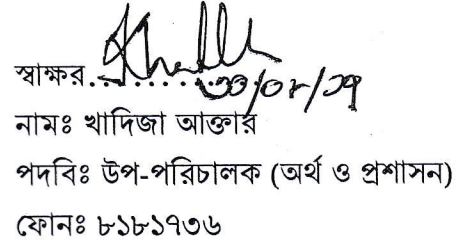 স্বাক্ষর.............
৩০/০৮/১৭
নামঃ খাদিজা আক্তার
পদবিঃ উপ-পরিচালক (অর্থ ও প্রশাসন)
ফোনঃ ৮১৮১৭৩৬